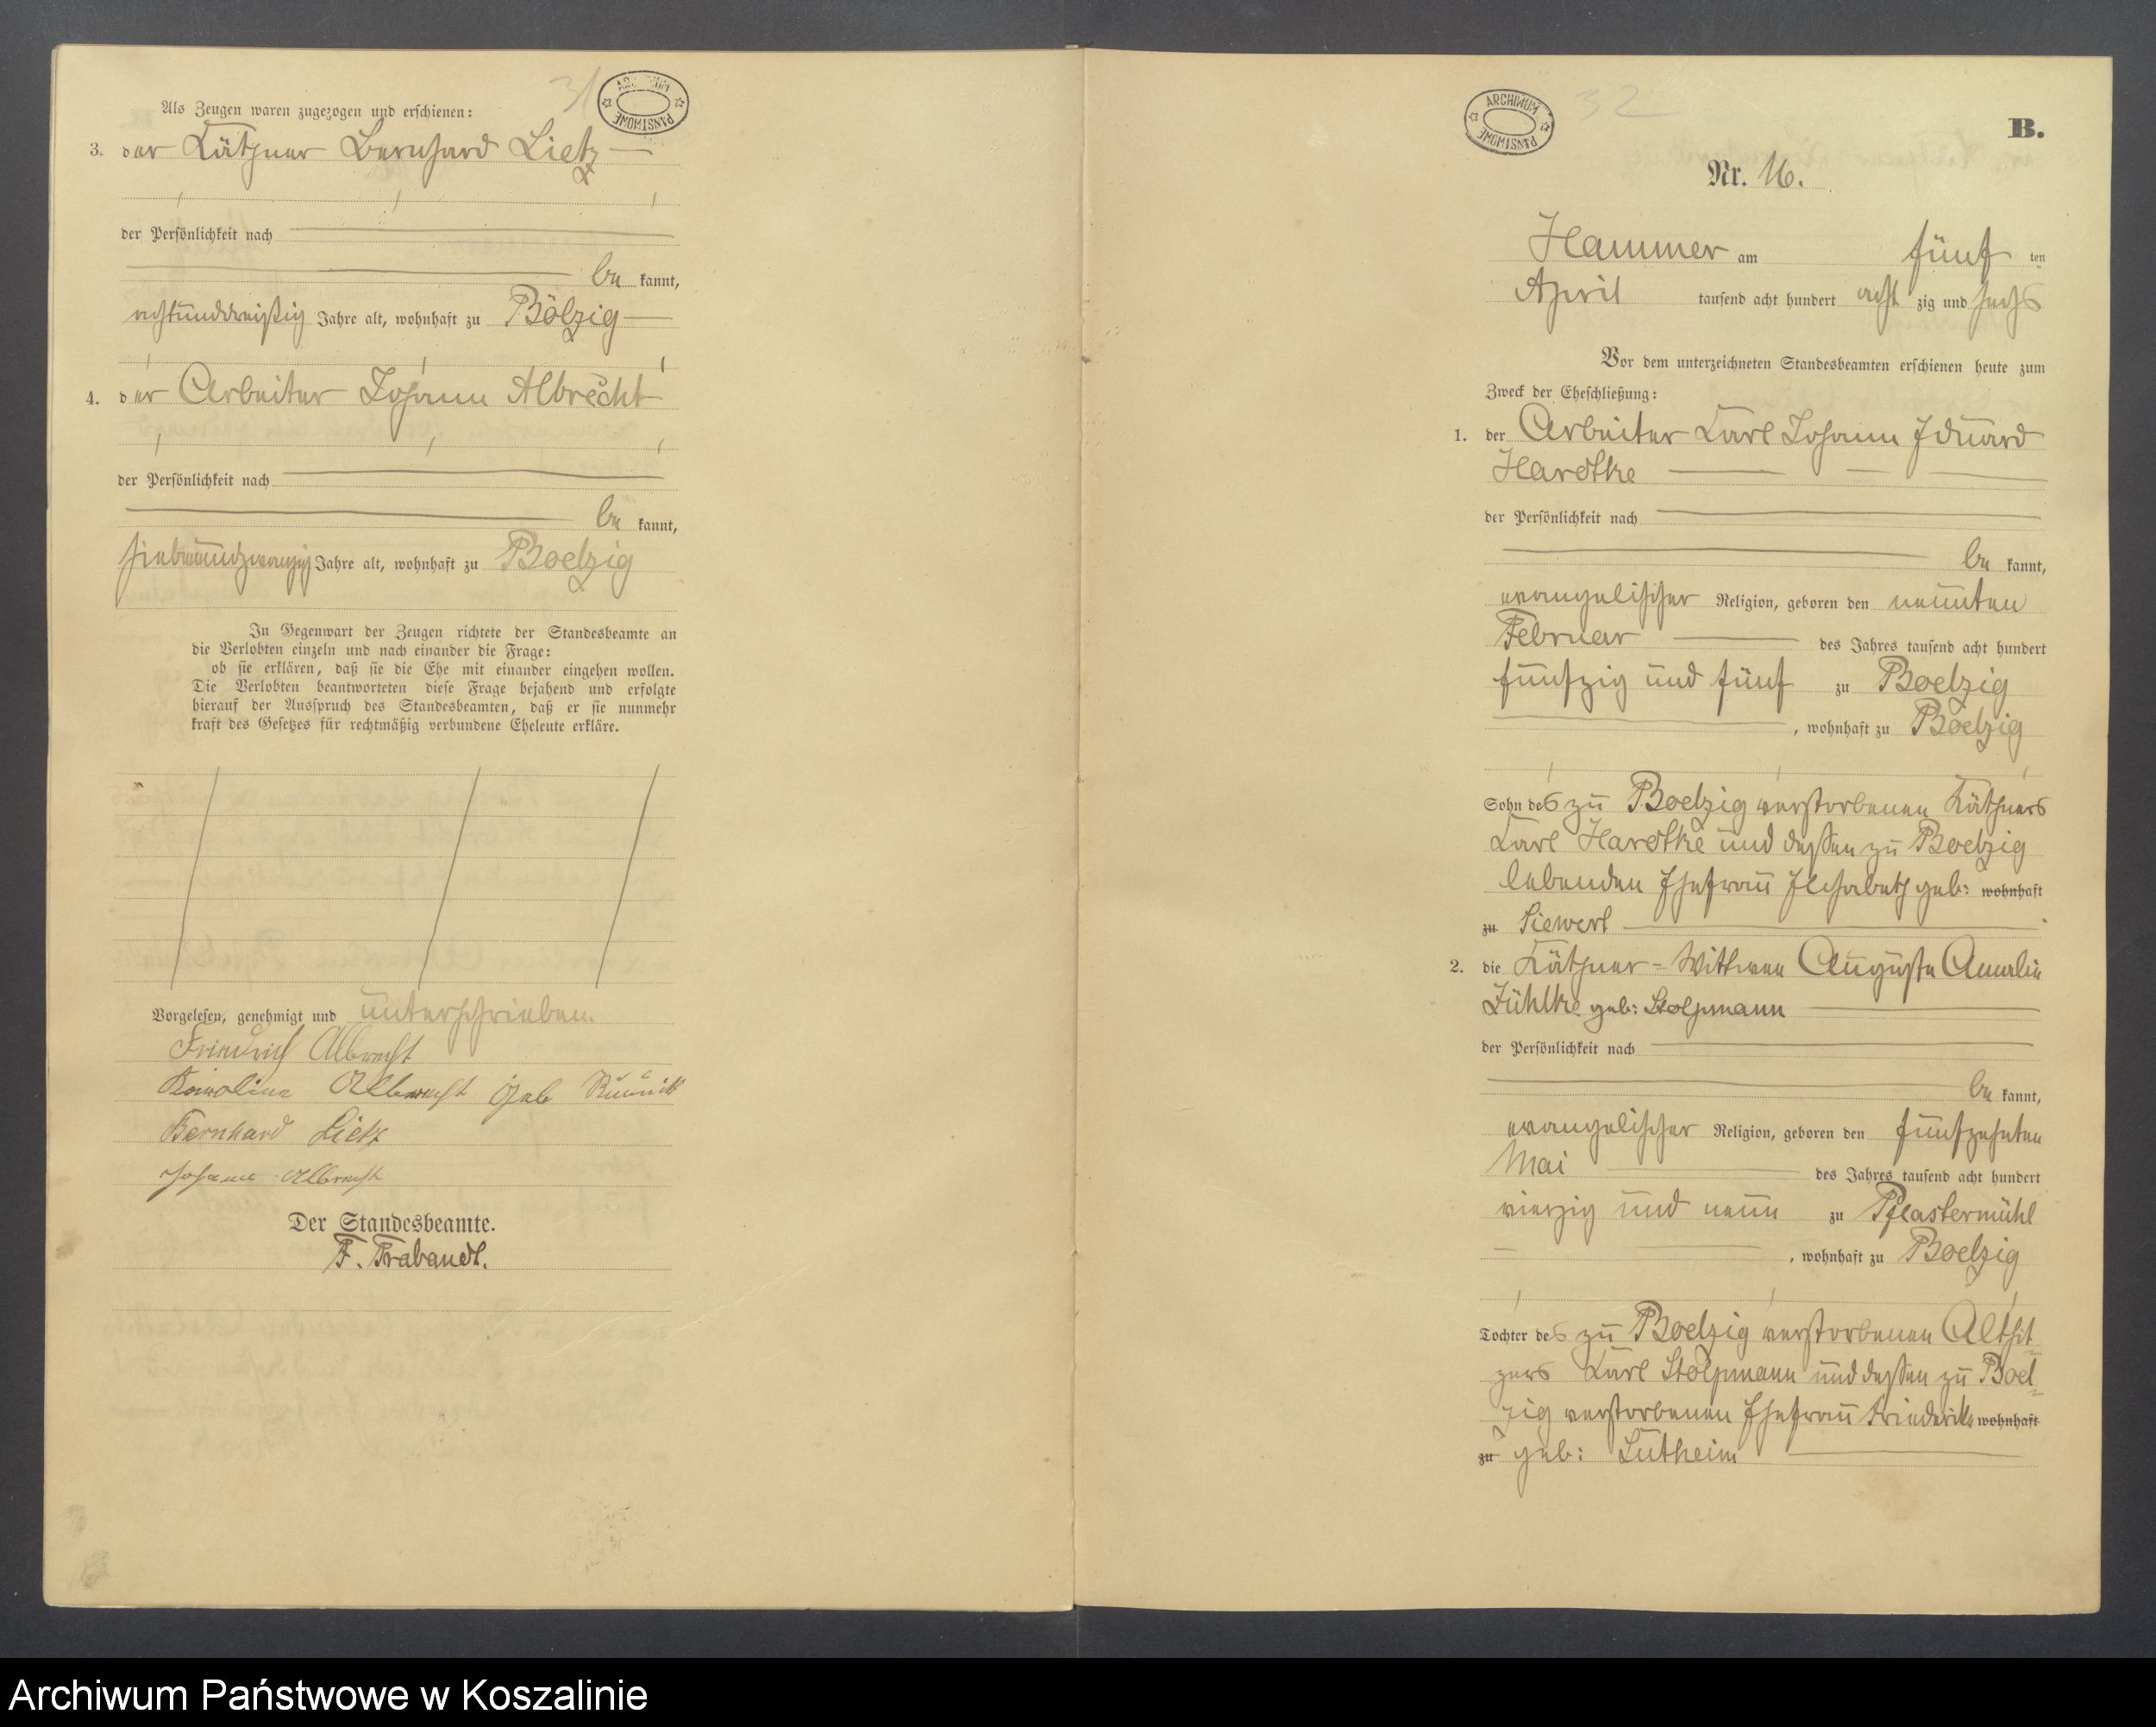 31
ARCHIWUM PAŃSTWOWE
Als Zeugen waren zugezogen und erschienen:
3. der Käthner Bernhard Lietz
der Persönlichkeit nach
be kannt,
achtunddreißig Jahre alt, wohnhaft zu Bölzig
4. der Arbeiter Johann Albrecht
der Persönlichkeit nach
be kannt,
siebenundzwanzig Jahre alt, wohnhaft zu Boelzig
In Gegenwart der Zeugen richtete der Standesbeamte an
die Verlobten einzeln und nach einander die Frage:
ob sie erklären, daß sie die Ehe mit einander eingehen wollen.
Die Verlobten beantworteten diese Frage bejahend und erfolgte
hierauf der Ausspruch des Standesbeamten, daß er sie nunmehr
kraft des Gesetzes für rechtmäßig verbundene Eheleute erkläre.
Vorgelesen, genehmigt und unterschrieben.
Friedrich Albrecht
Karoline Albrecht geb
Bernhard Lietz
Johann Albrecht
Der Standesbeamte.
F. Trabandt.
ARCHIWUM PAŃSTWOWE
32
B.
Nr. 16.
Hammer am fünf ten
April tausend acht hundert acht zig und sechs
Vor dem unterzeichneten Standesbeamten erschienen heute zum
Zweck der Eheschließung:
1. der Arbeiter Karl Johann Eduard
Hardtke
der Persönlichkeit nach
be kannt,
evangelischer Religion, geboren den neunten
Februar des Jahres tausend acht hundert
fünfzig und fünf zu Boelzig
, wohnhaft zu Boelzig
Sohn des zu Boelzig verstorbenen Käthners
Karl Hardtke und dessen zu Boelzig
lebenden Ehefrau Elisabeth geb: wohnhaft
zu Siewert
2. die Käthner-Wittwe Auguste Amalie
Zühlke geb: Stolpmann
der Persönlichkeit nach
be kannt,
evangelischer Religion, geboren den fünfzehnten
Mai des Jahres tausend acht hundert
vierzig und neun zu Pflastermühl
, wohnhaft zu Boelzig
Tochter des zu Boelzig verstorbenen Altsit
zers Karl Stolpmann und dessen zu Boel-
zig verstorbenen Ehefrau Friederike wohnhaft
zu geb: Lütheim
Archiwum Państwowe w Koszalinie